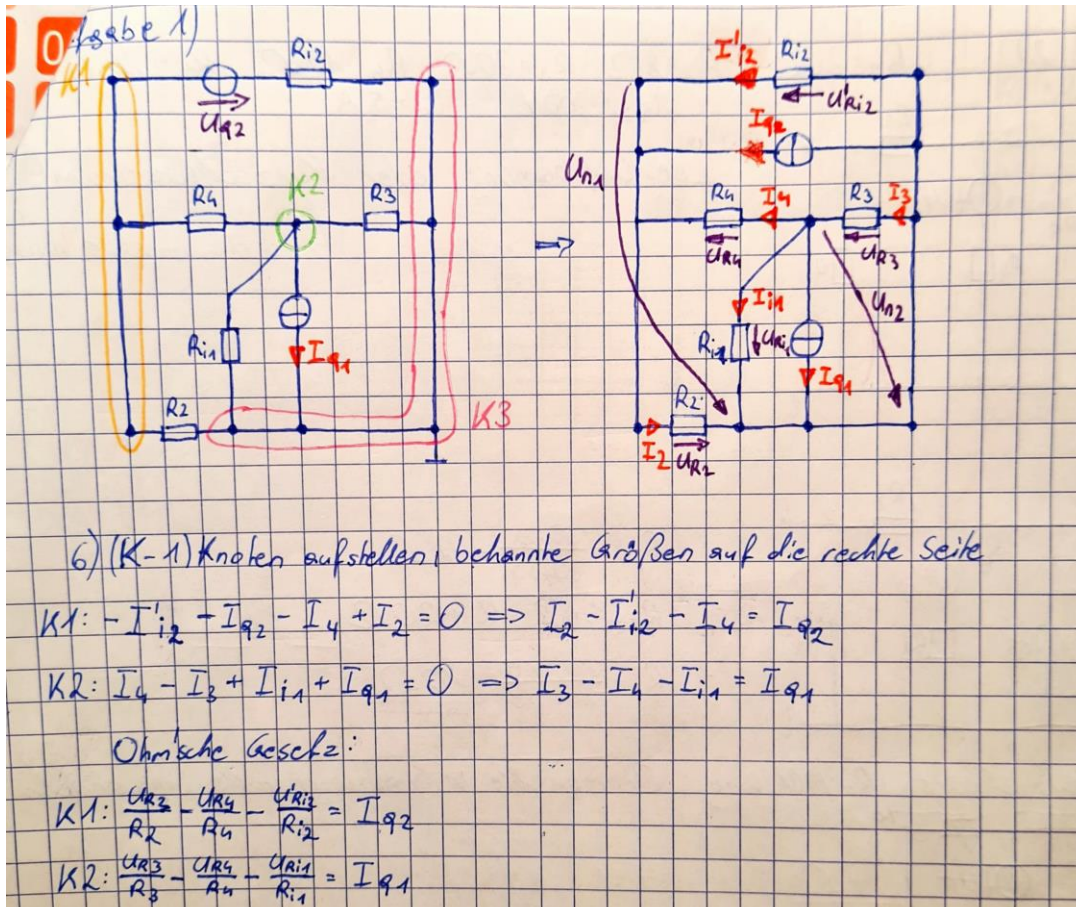 0
fgabe 1)
K1
Ri2
Uq2
R4
K2
R3
Ri1
Iq1
R2
K3
=>
I'i2
Ri2
U'Ri2
Iq2
Un1
R4
I4
R3
I3
UR4
UR3
Ii1
Un2
Ri1
URi1
Iq1
R2
I2
UR2
6) (K-1) Knoten aufstellen, bekannte Größen auf die rechte Seite
K1: -I'i2 - Iq2 - I4 + I2 = 0 => I2 - I'i2 - I4 = Iq2
K2: I4 - I3 + Ii1 + Iq1 = 0 => I3 - I4 - Ii1 = Iq1
Ohm'sche Gesetz:
K1: UR2/R2 - UR4/R4 - U'Ri2/Ri2 = Iq2
K2: UR3/R3 - UR4/R4 - URi1/Ri1 = Iq1